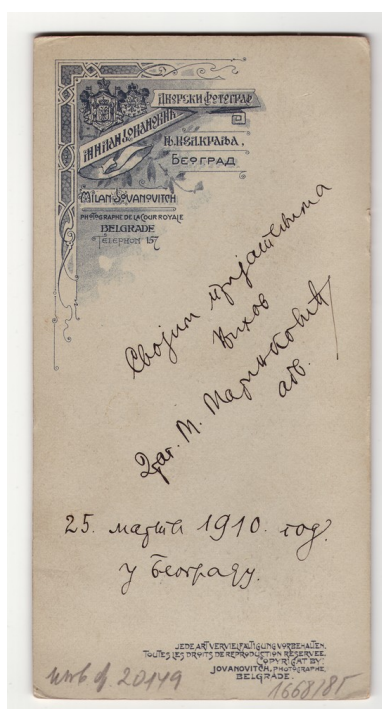 Дворски фотограф
Милан Јовановић
Њ. Вел. Краља.
Београд
Milan Jovanovitch
Photographe de la Cour Royale
Belgrade
Telephon 157
Својим пријатељима
Њихов
Драг. М. Маринковић
адв.
25. марта 1910. год.
у Београду.
Jede Art Vervielfältigung vorbehalten.
Toutes les droits de reproduction reservée.
Copyright by:
Jovanovitch, photographe,
Belgrade.
20449
1668/85